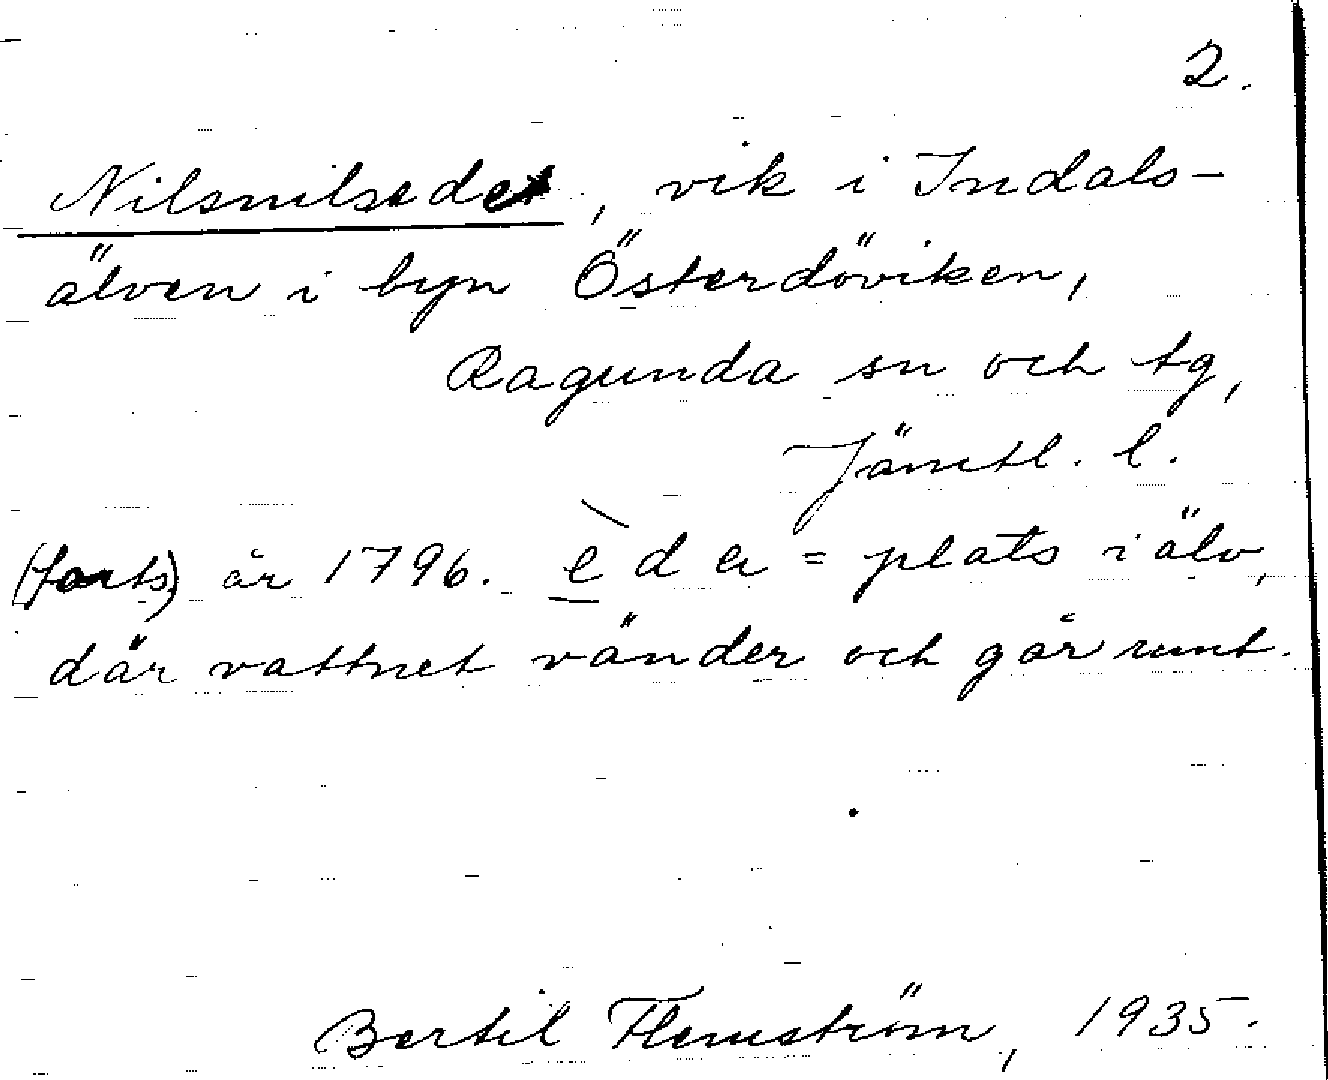 2.
Nilsnilsedet, vik i Indals-
älven i byn Österdöviken,
Ragunda sn och tg,
Jämtl. l.
(forts) år 1796. èda = plats i älv,
där vattnet vänder och går runt.
Bertil Flemström, 1935.